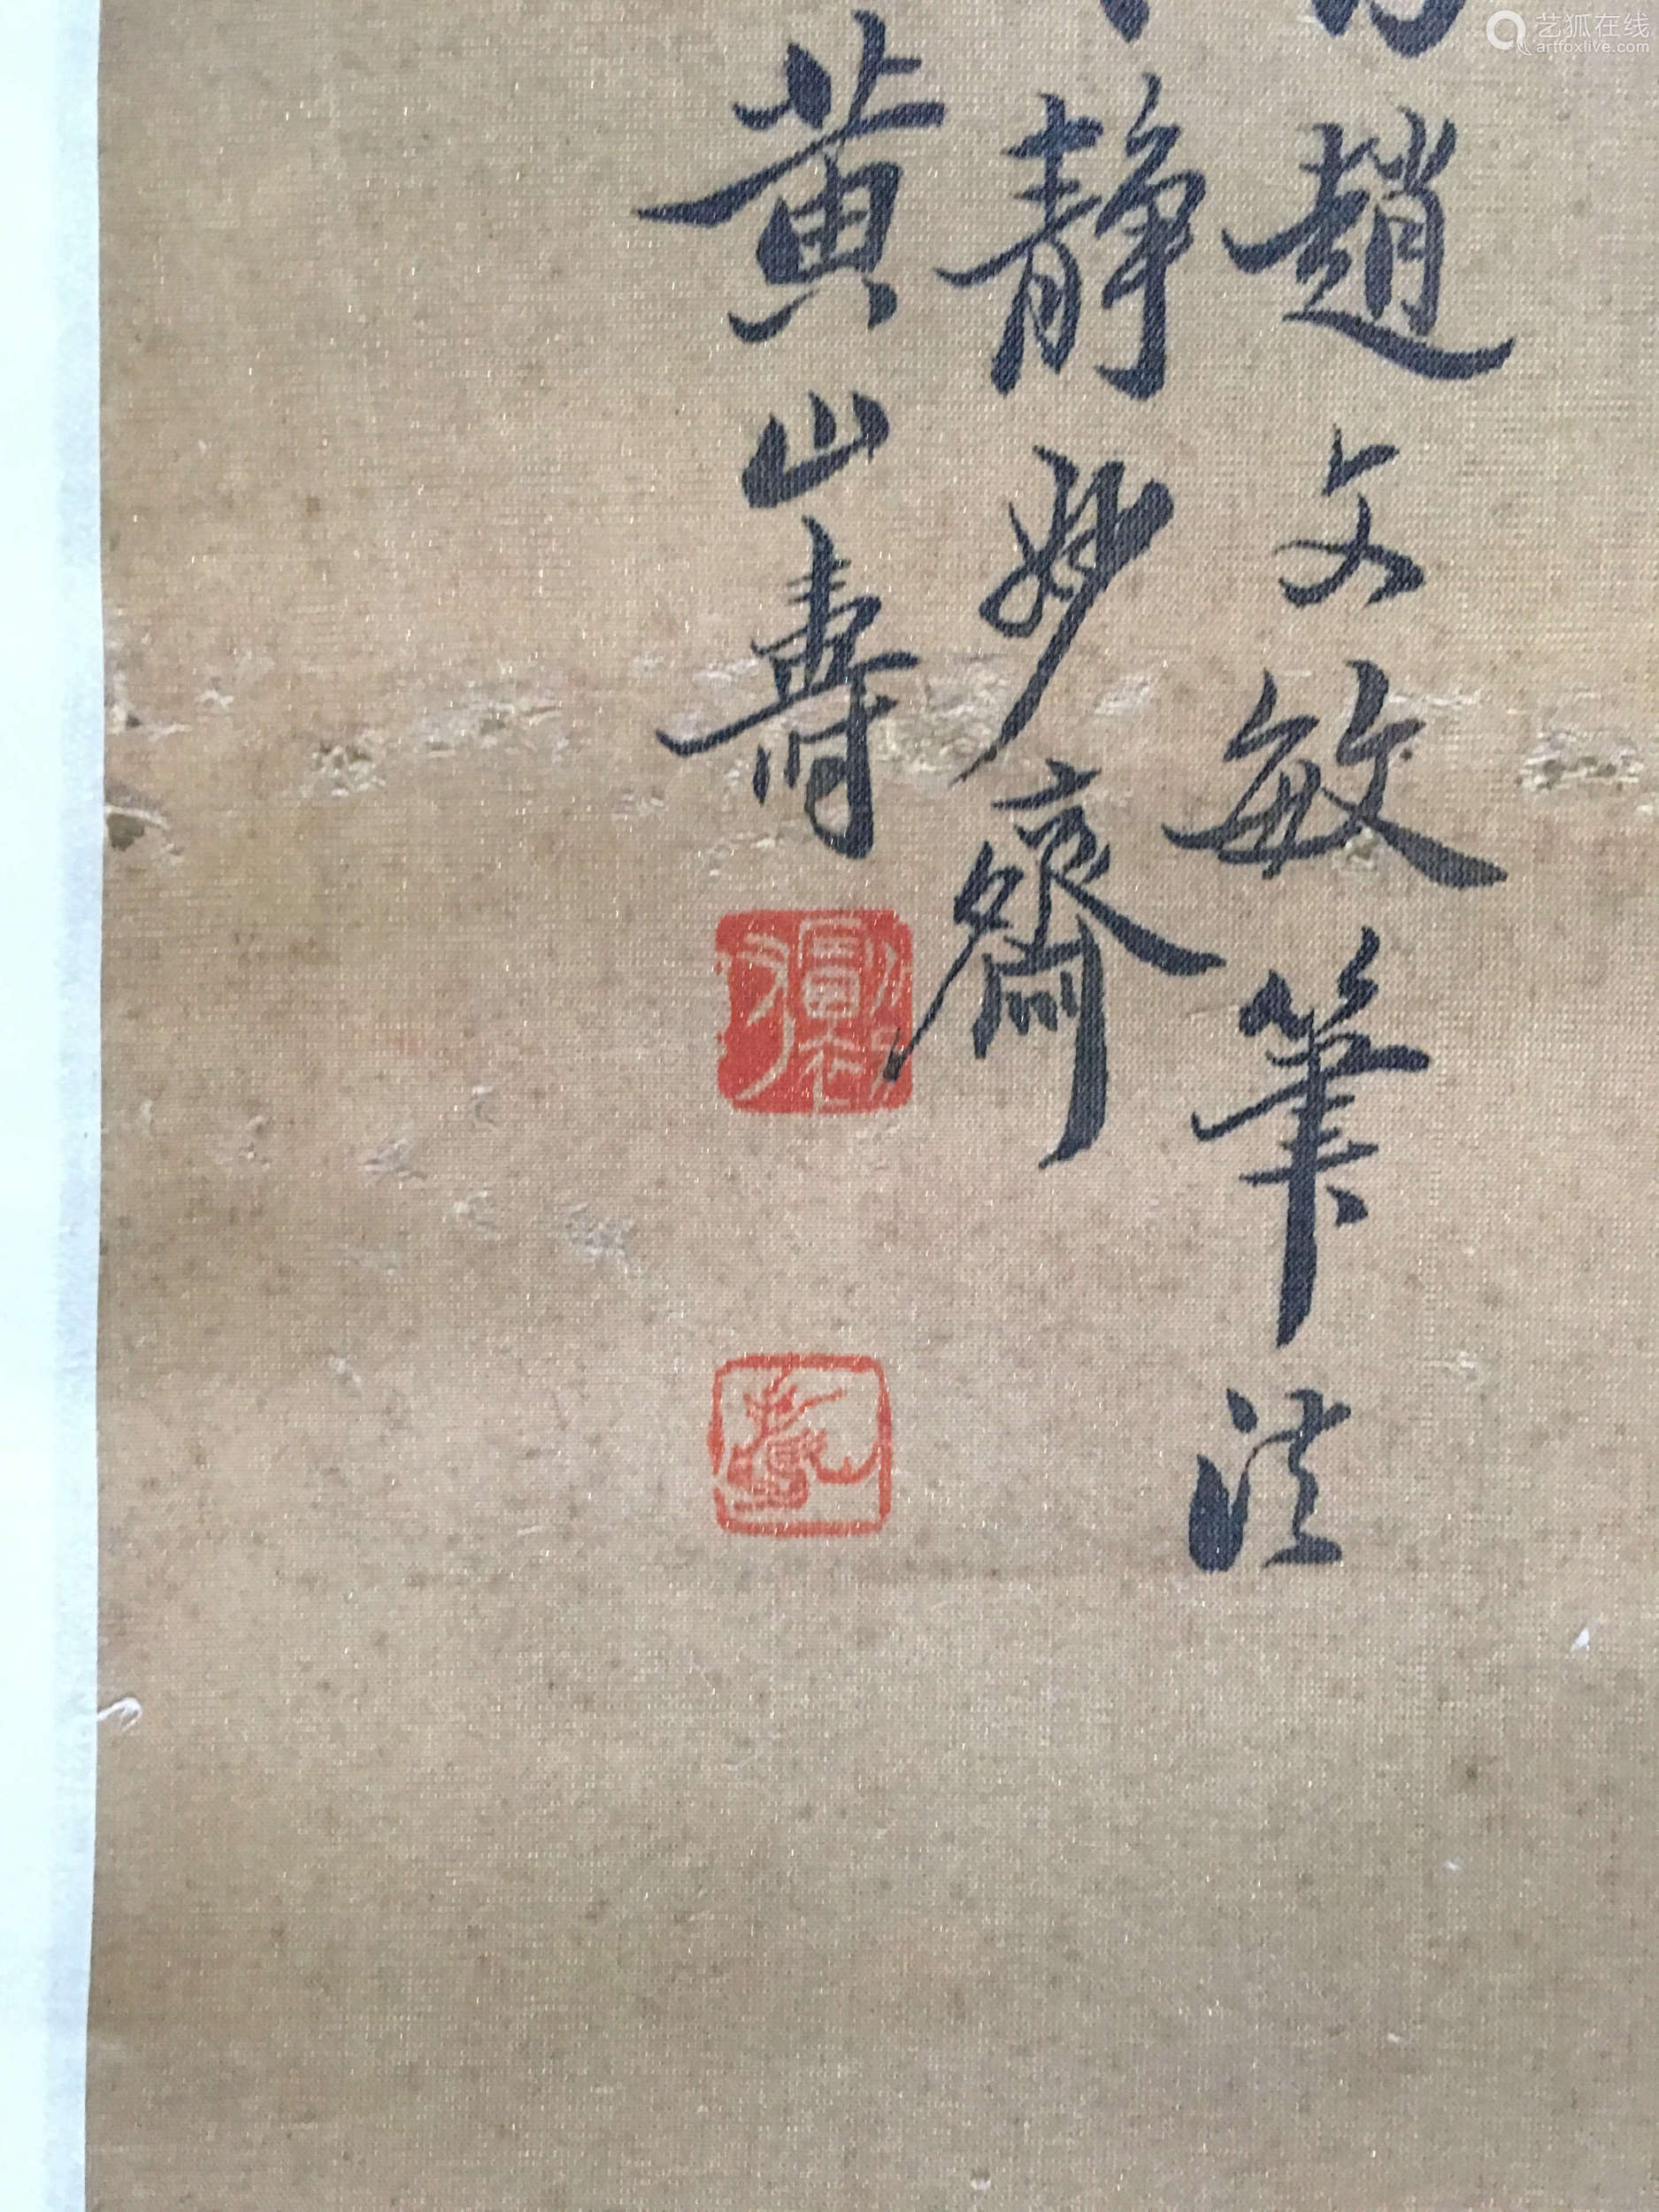 趙文敏筆法
靜妙齋
黃山壽
艺狐在线
artfoxlive.com